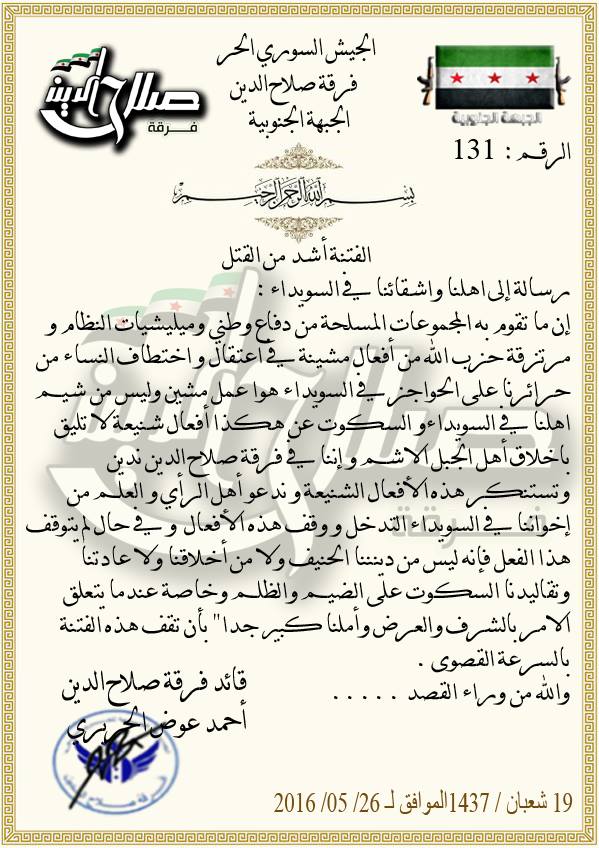 الجيش السوري الحر
فرقة صلاح الدين
الجبهة الجنوبية
صلاح الدين
فرقة
الجبهة الجنوبية
الرقم : 131
بسم الله الرحمن الرحيم
الفتنة أشد من القتل
رسالة إلى اهلنا واشقائنا في السويداء :
إن ما تقوم به المجموعات المسلحة من دفاع وطني وميليشيات النظام و
مرتزقة حزب الله من أفعال مشينة في اعتقال و اختطاف النساء من
حرائرنا على الحواجز في السويداء هوا عمل مشين وليس من شيم
اهلنا في السويداء و السكوت عن هكذا أفعال شنيعة لا تليق
باخلاق أهل الجبل الاشم و إننا في فرقة صلاح الدين ندين
وتستنكر هذه الأفعال الشنيعة و ندعو أهل الرأي و العلم من
إخواننا في السويداء التدخل و وقف هذه الأفعال و في حال لم يتوقف
هذا الفعل فإنه ليس من ديننا الحنيف ولا من أخلاقنا ولا عادتنا
وتقاليدنا السكوت على الضيم والظلم وخاصة عندما يتعلق
الامر بالشرف والعرض وأملنا كبير جدا" بأن تقف هذه الفتنة
بالسرعة القصوى .
والله من وراء القصد . . . . .
قائد فرقة صلاح الدين
أحمد عوض الحريري
19 شعبان / 1437الموافق لـ 26/ 05/ 2016